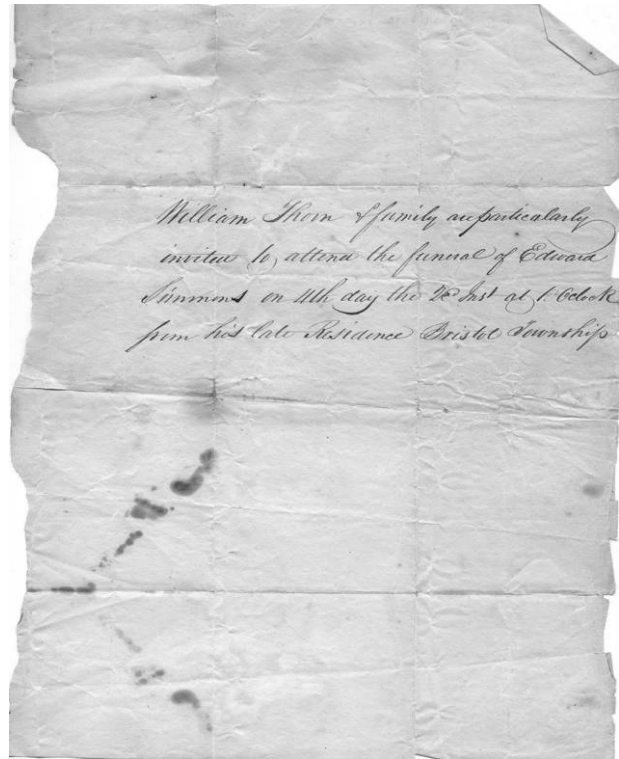 William Thorn & family are particularly
invited to attend the funeral of Edward
Simmons on 4th day the 2d Inst at 1 Oclock
from his late Residence Bristol Township